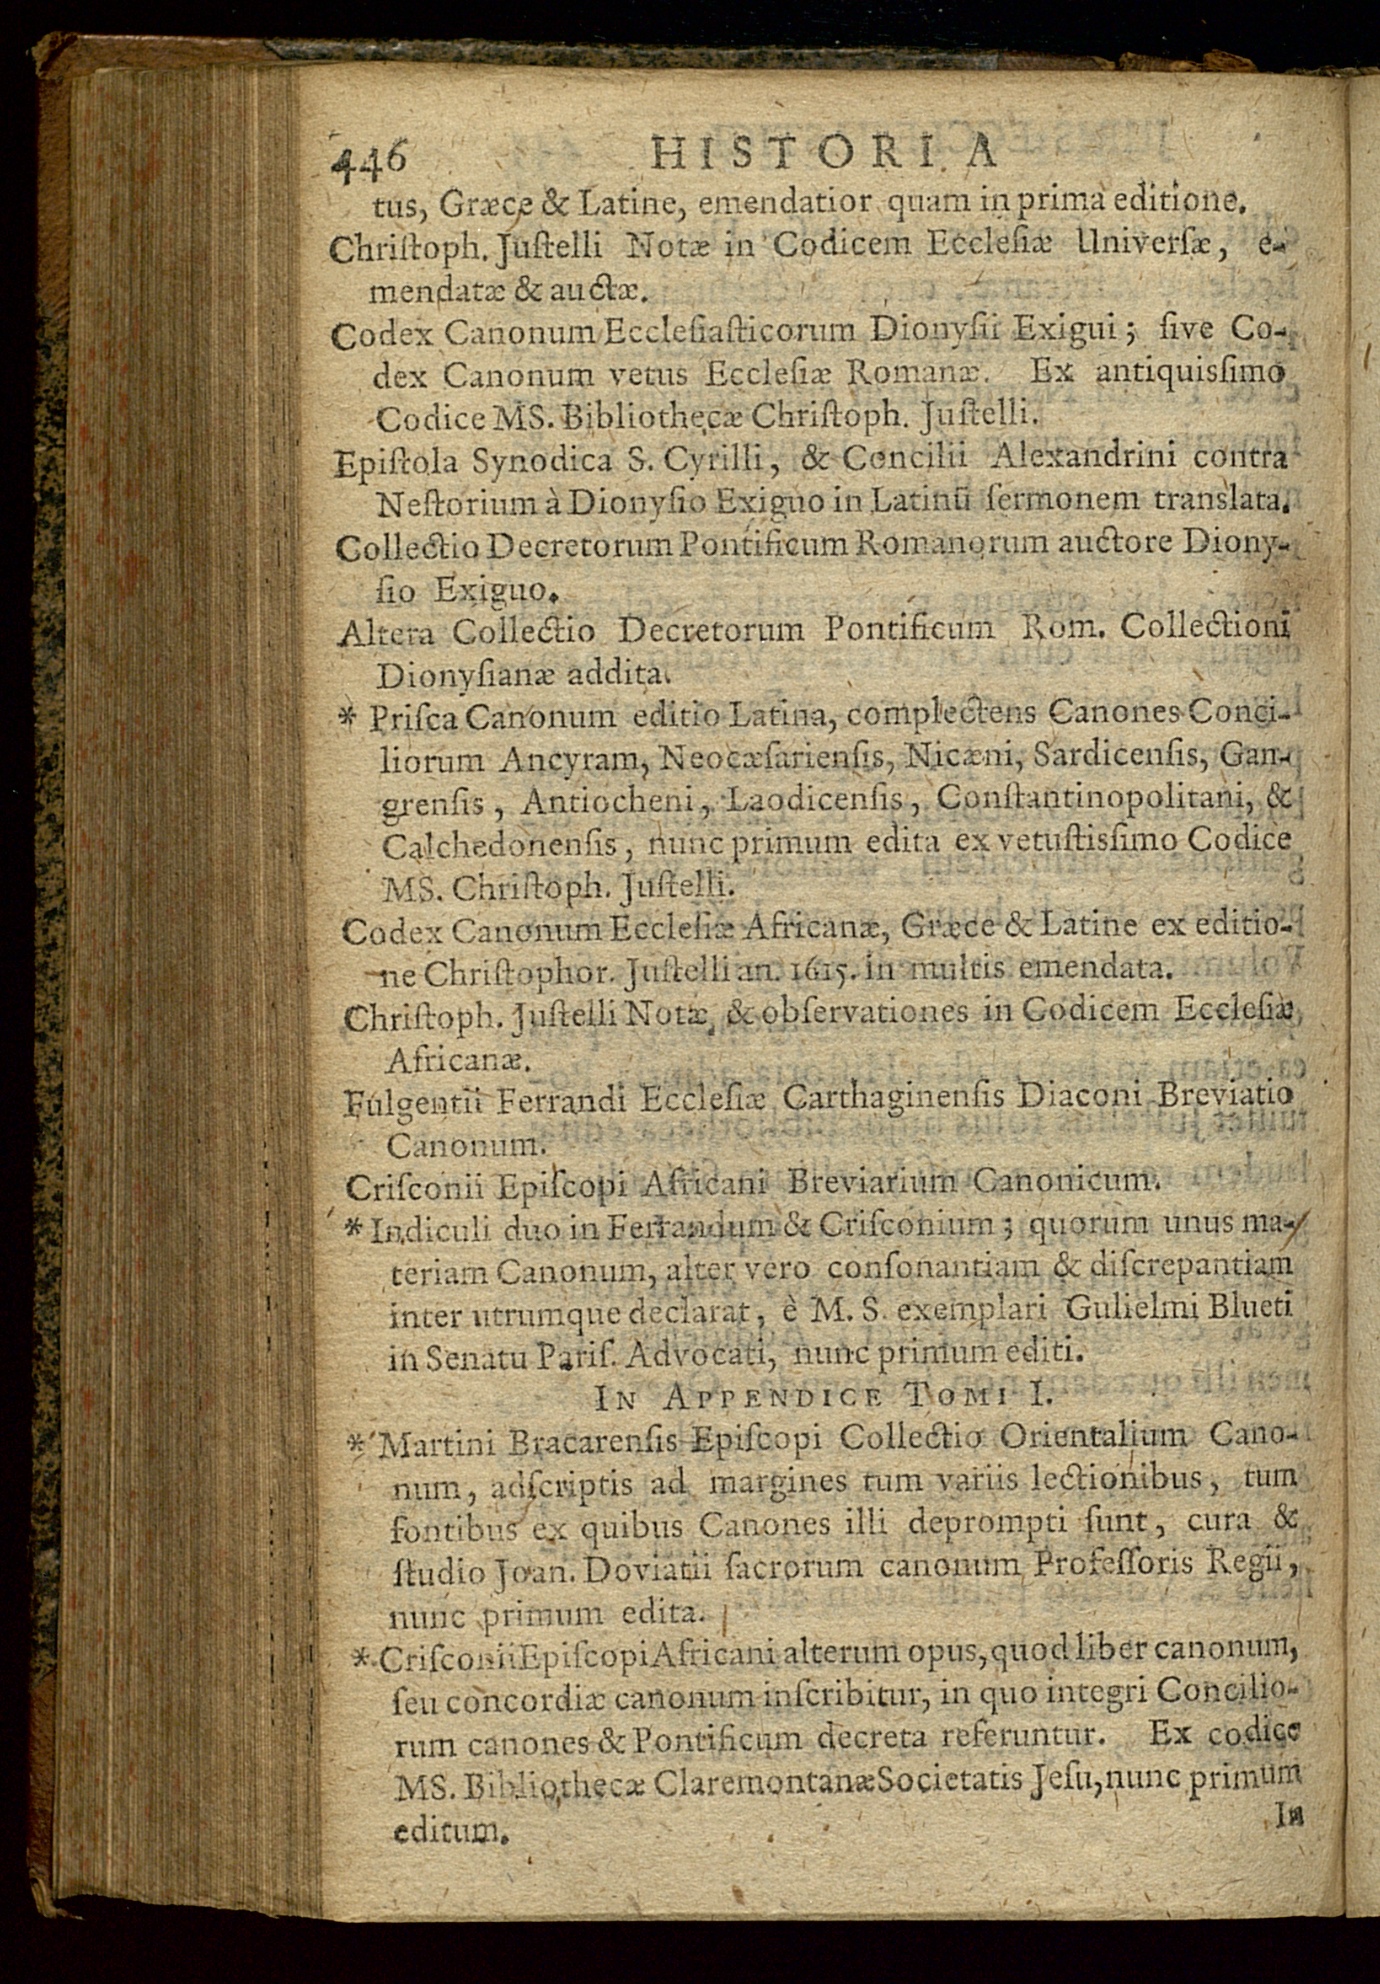 446 HISTORIA
tus, Græce & Latine, emendatior quam in prima editione.
Chriſtoph. Juſtelli Notæ in Codicem Eccleſiæ Univerſæ, e-
mendatæ & auctæ.
Codex Canonum Eccleſiaſticorum Dionyſii Exigui; ſive Co-
dex Canonum vetus Eccleſiæ Romanæ. Ex antiquisſimo
Codice MS. Bibliothecæ Chriſtoph. Juſtelli.
Epiſtola Synodica S. Cyrilli, & Concilii Alexandrini contra
Neſtorium à Dionyſio Exiguo in Latinū ſermonem translata.
Collectio Decretorum Pontificum Romanorum auctore Diony-
ſio Exiguo.
Altera Collectio Decretorum Pontificum Rom. Collectioni
Dionyſianæ addita.
* Priſca Canonum editio Latina, complectens Canones Conci-
liorum Ancyram, Neocæſarienſis, Nicæni, Sardicenſis, Gan-
grenſis, Antiocheni, Laodicenſis, Conſtantinopolitani, &
Calchedonenſis, nunc primum edita ex vetuſtisſimo Codice
MS. Chriſtoph. Juſtelli.
Codex Canonum Eccleſiæ Africanæ, Græce & Latine ex editio-
ne Chriſtophor. Juſtelli an. 1615. in multis emendata.
Chriſtoph. Juſtelli Notæ & obſervationes in Codicem Eccleſiæ
Africanæ.
Fulgentii Ferrandi Eccleſiæ Carthaginenſis Diaconi Breviatio
Canonum.
Criſconii Epiſcopi Africani Breviarium Canonicum.
* Indiculi duo in Ferrandum & Criſconium; quorum unus ma-
teriam Canonum, alter vero conſonantiam & diſcrepantiam
inter utrumque declarat, è M. S. exemplari Gulielmi Blueti
in Senatu Pariſ. Advocati, nunc primum editi.
IN APPENDICE TOMI I.
* Martini Bracarenſis Epiſcopi Collectio Orientalium Cano-
num, adſcriptis ad margines tum variis lectionibus, tum
fontibus ex quibus Canones illi deprompti ſunt, cura &
ſtudio Joan. Doviatii ſacrorum canonum Profeſſoris Regii,
nunc primum edita.
* Criſconii Epiſcopi Africani alterum opus, quod liber canonum,
ſeu concordiæ canonum inſcribitur, in quo integri Concilio-
rum canones & Pontificum decreta referuntur. Ex codice
MS. Bibliothecæ Claremontanæ Societatis Jeſu, nunc primum
editum.
In